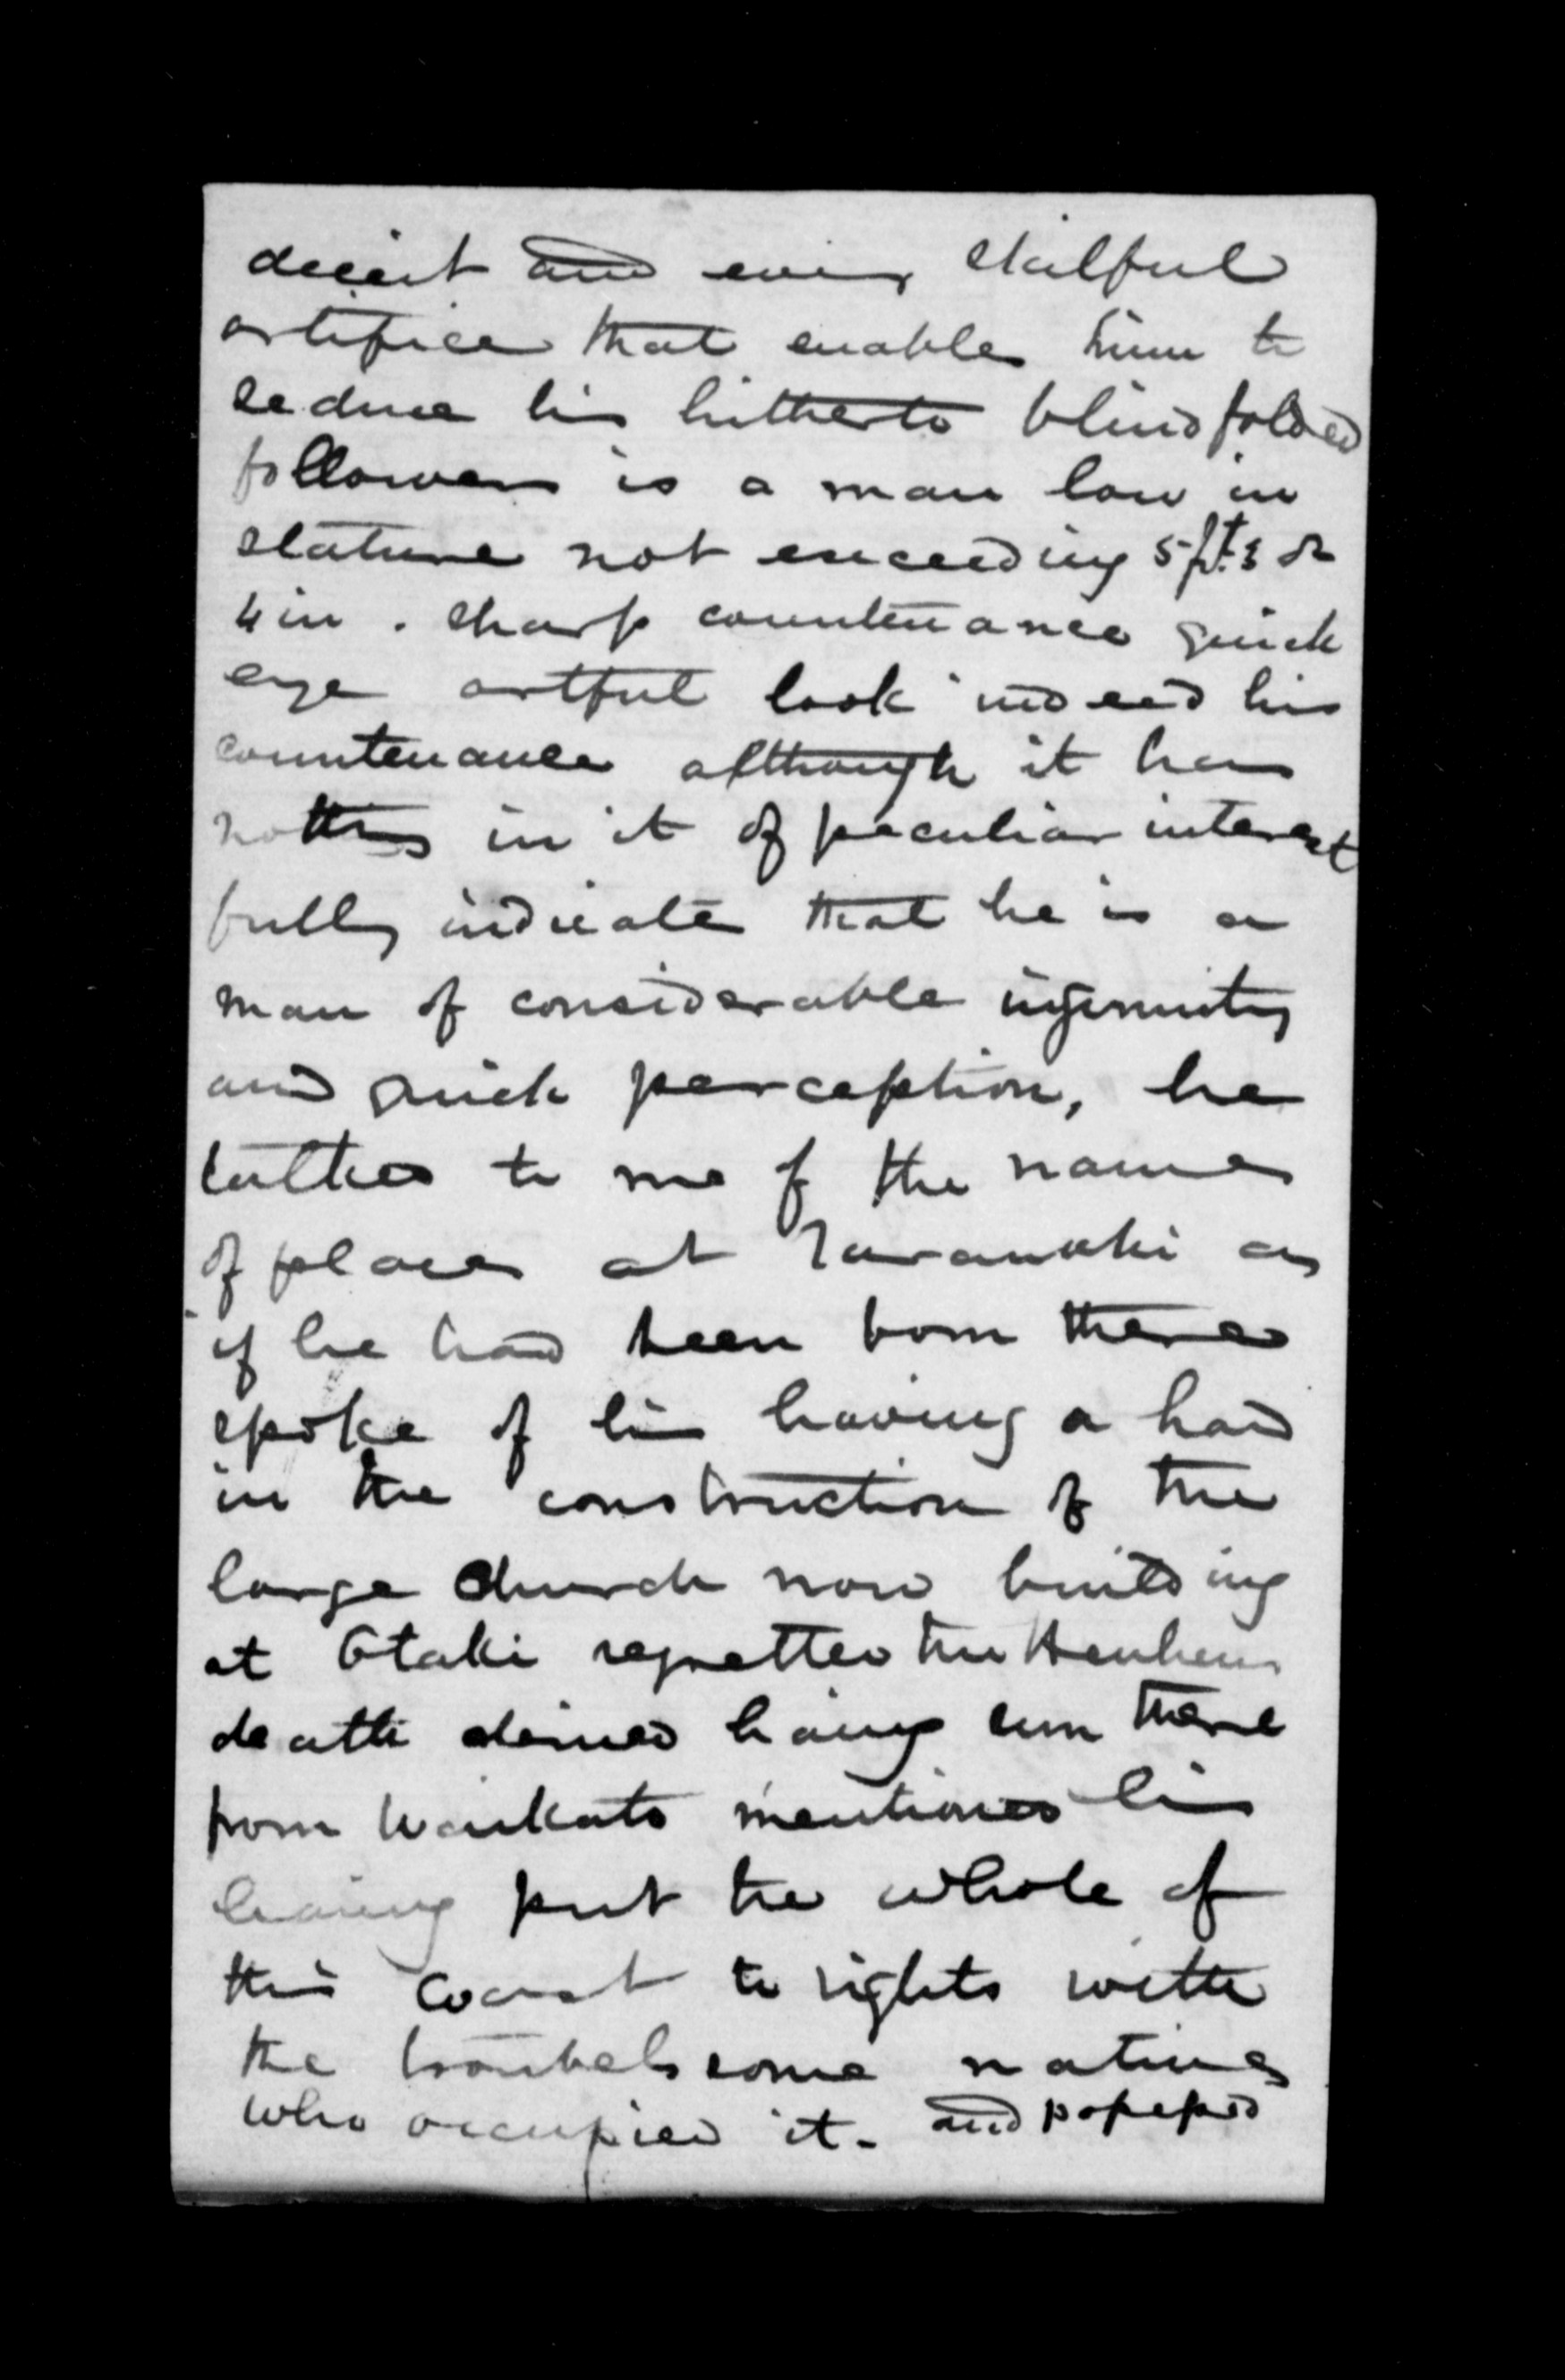 deceit and every skilful
artifice that enables him to
seduce his hitherto blindfolded
followers is a man low in
stature not exceeding 5 ft. 3 or
4 in. sharp countenance quick
eye artful look indeed his
countenance although it has
nothing in it of peculiar interest
fully indicate that he is a
man of considerable ingenuity
and quick perception, he
talked to me of the names
of places at Taranaki as
if he had been born there
spoke of his having a hand
in the construction of the
large Church now building
at Otaki regretted the
death denied having
from Waikato mentioned his
having put the whole of
this coast to rights with
the troubelsome natives
who occupied it - and